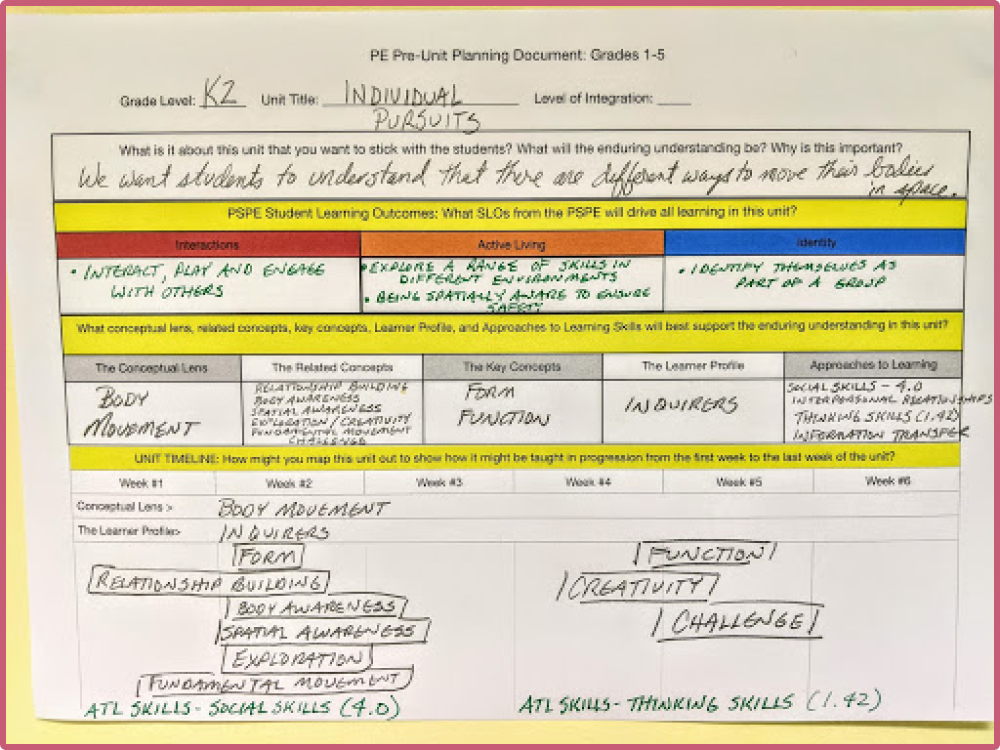 PE Pre-Unit Planning Document: Grades 1-5
Grade Level: K2 Unit Title: INDIVIDUAL PURSUITS Level of Integration: ____
What is it about this unit that you want to stick with the students? What will the enduring understanding be? Why is this important?
We want students to understand that there are different ways to move their bodies
in space.
PSPE Student Learning Outcomes: What SLOs from the PSPE will drive all learning in this unit?
Interactions
• INTERACT, PLAY AND ENGAGE
WITH OTHERS
Active Living
• EXPLORE A RANGE OF SKILLS IN
DIFFERENT ENVIRONMENTS
• BEING SPATIALLY AWARE TO ENSURE
SAFETY
Identity
• IDENTIFY THEMSELVES AS
PART OF A GROUP
What conceptual lens, related concepts, key concepts, Learner Profile, and Approaches to Learning Skills will best support the enduring understanding in this unit?
The Conceptual Lens
BODY
MOVEMENT
The Related Concepts
RELATIONSHIP BUILDING
BODY AWARENESS
SPATIAL AWARENESS
EXPLORATION / CREATIVITY
FUNDAMENTAL MOVEMENT
CHALLENGE
The Key Concepts
FORM
FUNCTION
The Learner Profile
INQUIRERS
Approaches to Learning
SOCIAL SKILLS - 4.0
INTERPERSONAL RELATIONSHIPS
THINKING SKILLS (1.42)
INFORMATION TRANSFER
UNIT TIMELINE: How might you map this unit out to show how it might be taught in progression from the first week to the last week of the unit?
Week #1 Week #2 Week #3 Week #4 Week #5 Week #6
Conceptual Lens > BODY MOVEMENT
The Learner Profile> INQUIRERS
FORM
RELATIONSHIP BUILDING
BODY AWARENESS
SPATIAL AWARENESS
EXPLORATION
FUNDAMENTAL MOVEMENT
ATL SKILLS - SOCIAL SKILLS (4.0)
FUNCTION
CREATIVITY
CHALLENGE
ATL SKILLS - THINKING SKILLS (1.42)